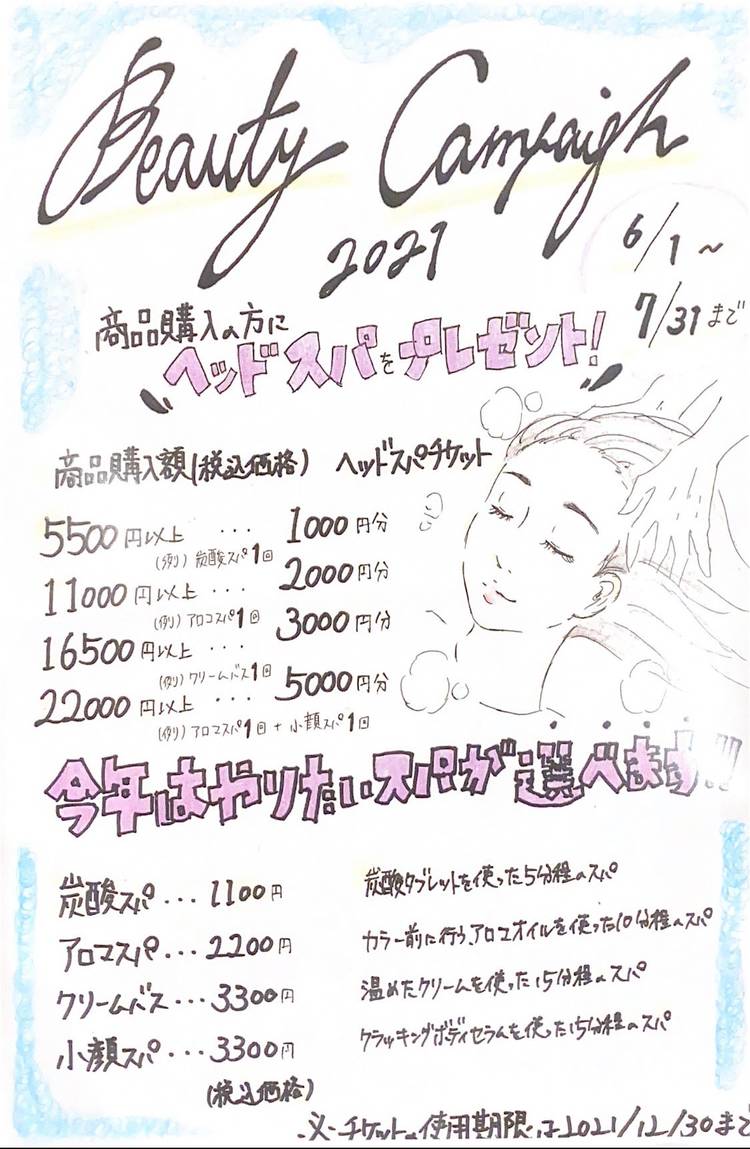 Beauty Campaign
2021
6/1～
7/31まで
商品購入の方に
ヘッドスパをプレゼント!
商品購入額(税込価格) ヘッドスパチケット
5500円以上 ・・・ 1000円分
(例り) 炭酸スパ1回
11000円以上 ・・・ 2000円分
(例り) アロコスパ1回
16500円以上 3000円分
(例り) クリームバス1回
22000円以上 ・・・ 5000円分
(例り) アロマスパ1回+小顔スパ1回
今年はやりたいスパが選べます!!
炭酸スパ...1100円 炭酸タブレットを使った5分程のスパ
アロマスパ...2200円 カラー前に行う、アロマオイルを使った10分程のスパ
クリームバス...3300円 温めたクリームを使った15分程のスパ
小顔スパ...3300円 クラッキングボディセラムを使った15分程のスパ
(税込価格)
※チケットの使用期限は2021/12/30まで